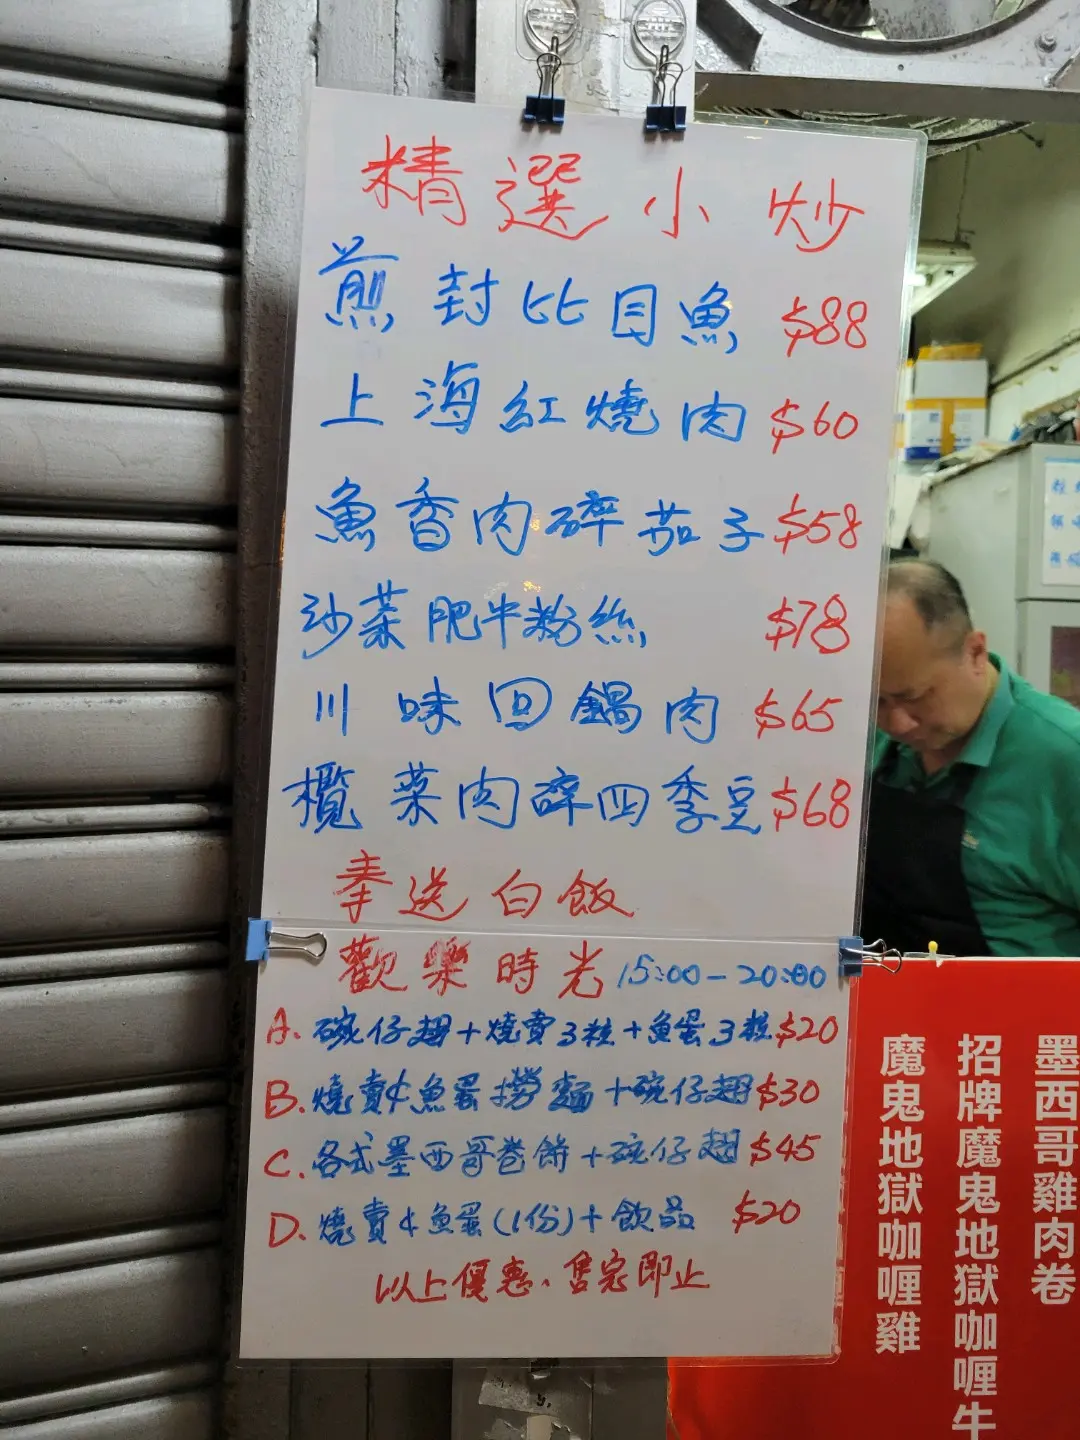 精選小炒
煎封比目魚 $88
上海紅燒肉 $60
魚香肉碎茄子 $58
沙菜肥牛粉絲 $78
川味回鍋肉 $65
欖菜肉碎四季豆 $68
奉送白飯
歡樂時光 15:00-20:00
A. 碗仔翅+燒賣3粒+魚蛋3粒 $20
B. 燒賣&魚蛋撈麵+碗仔翅 $30
C. 各式墨西哥卷餅+碗仔翅 $45
D. 燒賣&魚蛋(1份)+飲品 $20
以上優惠、售完即止
墨西哥雞肉卷
招牌魔鬼地獄咖喱牛
魔鬼地獄咖喱雞